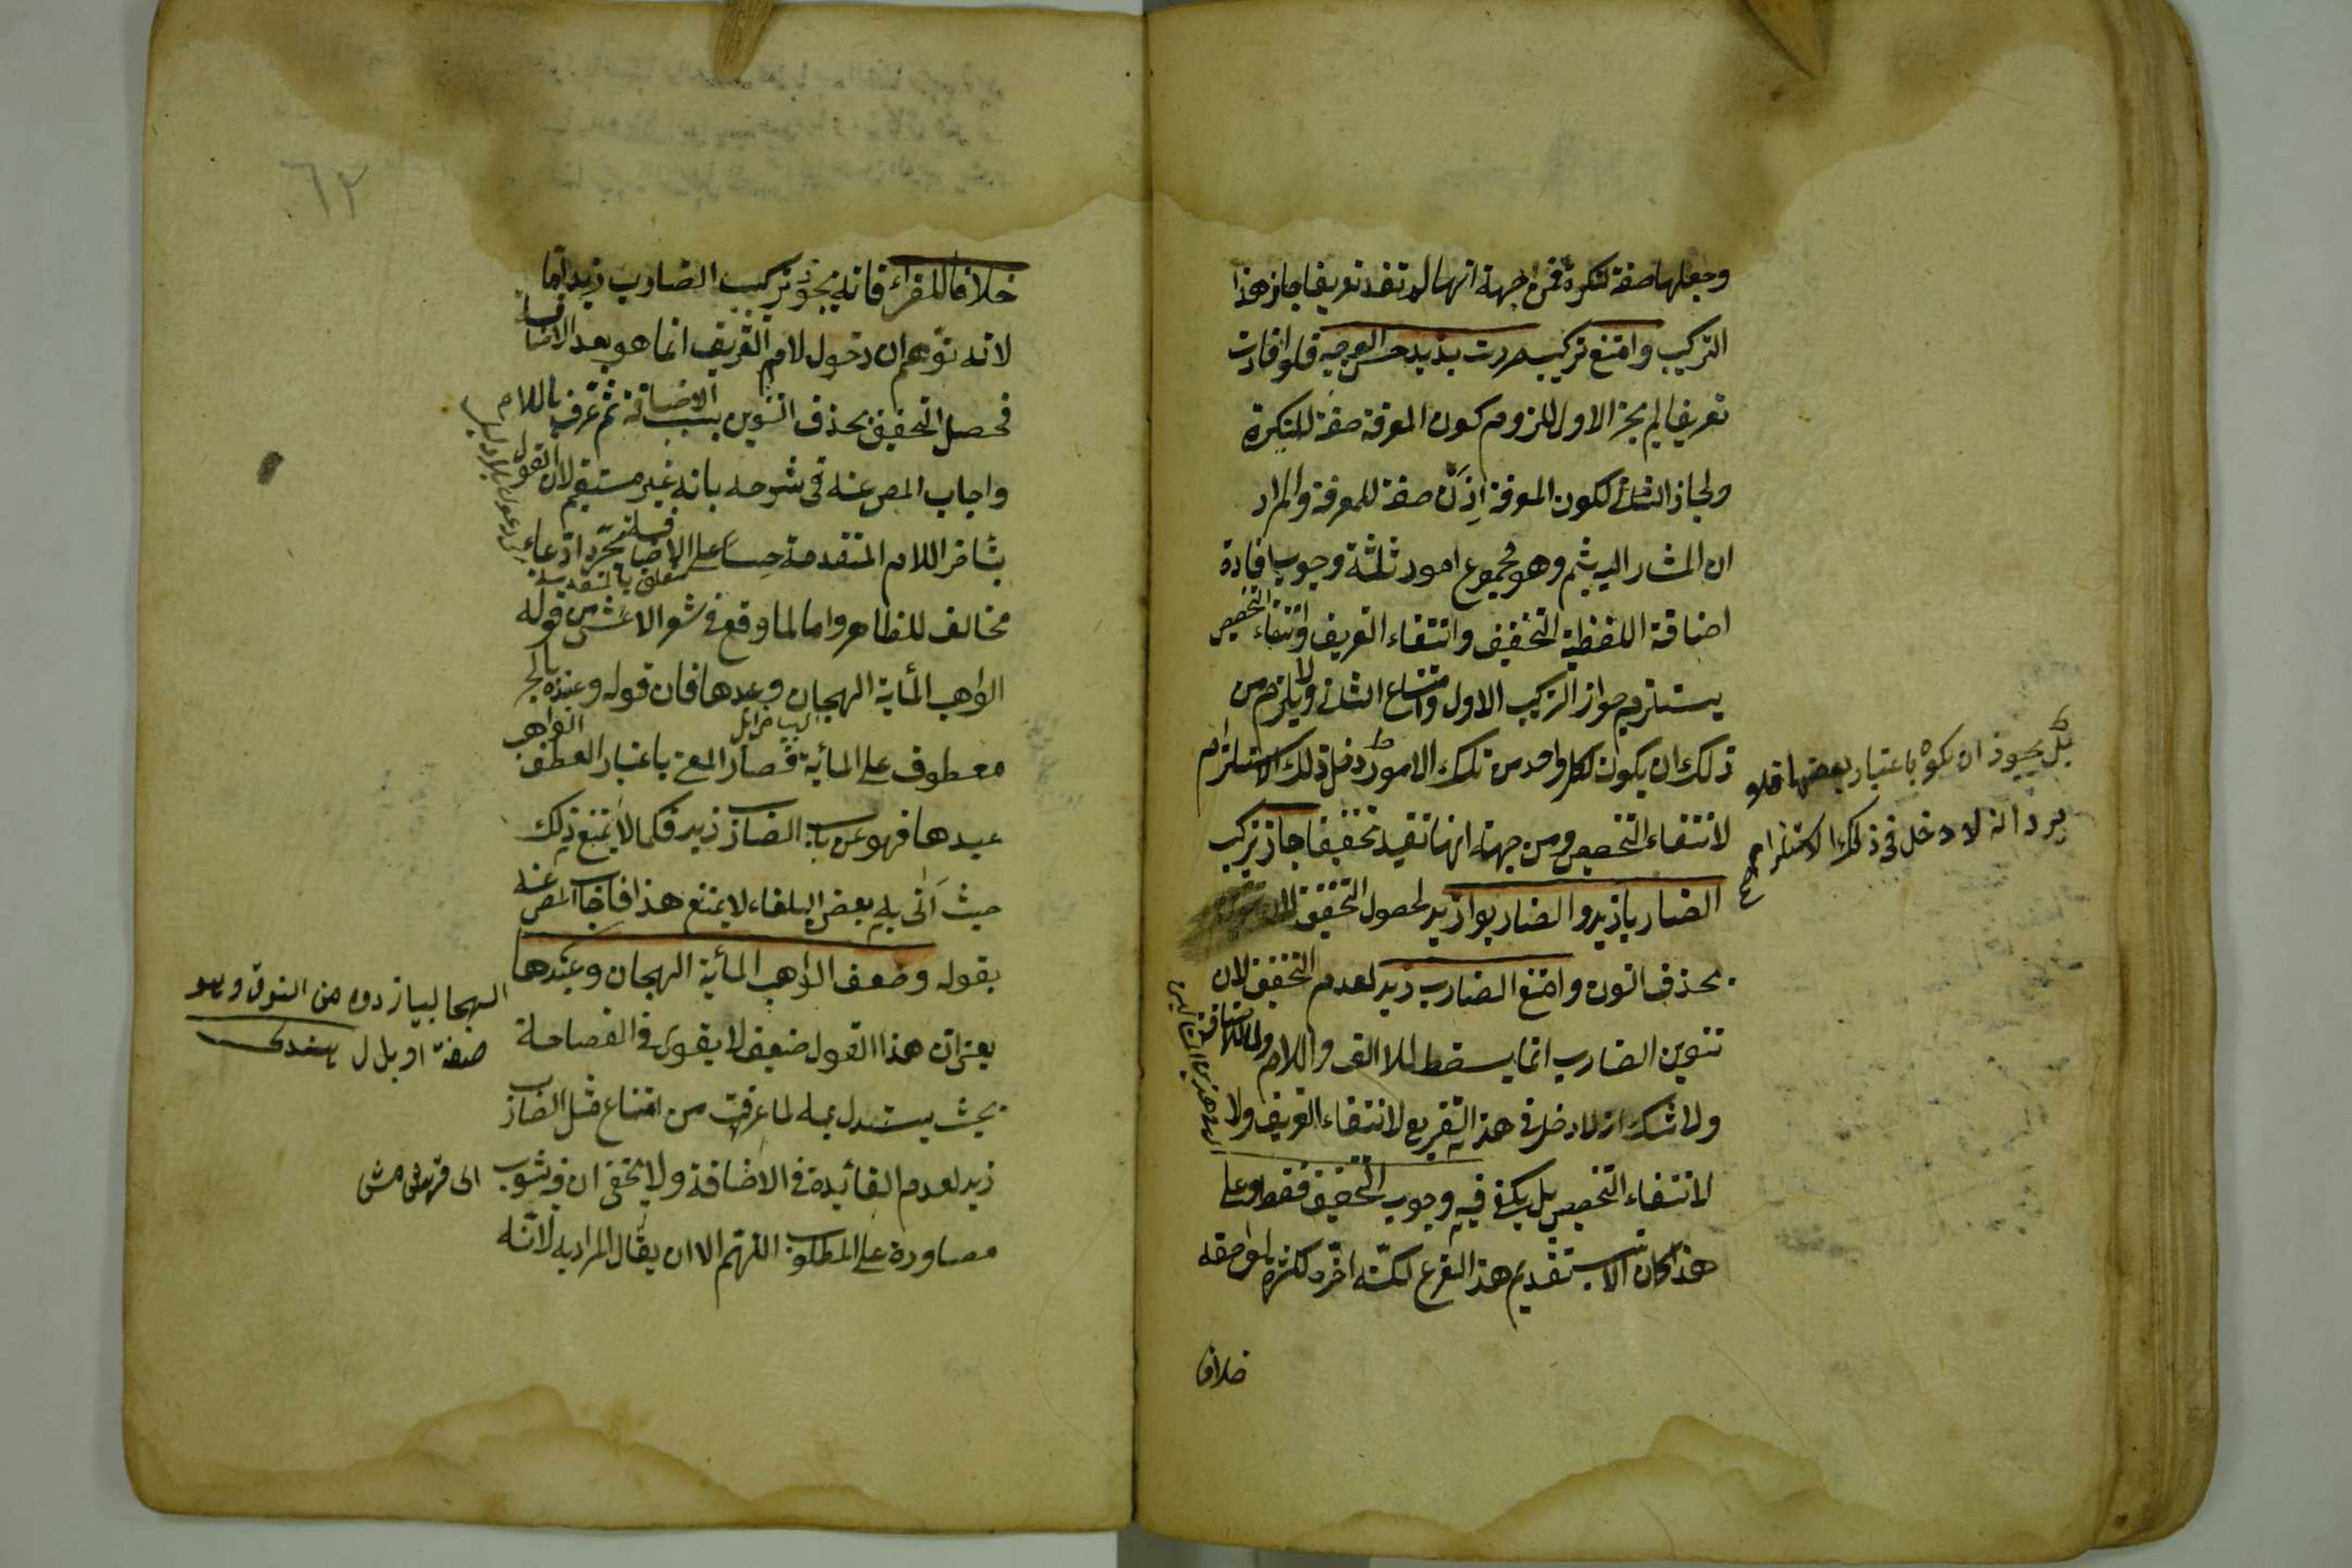 وجعلها صفة لنكرة فمن جهة انها لم تفد تعريفا جاز هذا
التركيب وامتنع تركيب مررت بزيد حسن الوجه فلو افادت
تعريفا لم يجز الاول للزوم كون المعرفة صفة للنكرة
ولجاز الثانى لكون المعرفة اذن صفة للمعرفة والمراد
ان المشار اليه بثم وهو مجموع امور ثلثة وجوب افادة
اضافة اللفظية التخفيف وانتفاء التعريف وانتفاء التخصيص
يستلزم جواز التركيب الاول وامتناع الثانى ولا يلزم من
ذلك ان يكون لكل واحد من تلك الامور دخل فى ذلك الاستلزام
بل يجوز ان يكون باعتبار بعضها فلا
يرد انه لا دخل فى ذلك الاستلزام
لانتفاء التخصيص ومن جهة انها تفيد تخفيفا جاز تركيب
الضاربا زيد والضاربوا زيد لحصول التخفيف
بحذف النون وامتنع الضارب زيد لعدم التخفيف لان
تنوين الضارب انما يسقط للالف واللام لا للاضافة
ولا شك انه لا دخل فى هذا التفريع لانتفاء التعريف ولا
لانتفاء التخصيص بل يكفى فيه وجوب التخفيف فقط وعلى
هذا كان الانسب تقديم هذا الفرع لكنه اخره لكثرة لواحقه
خلافا
٦٢
خلافا للفراء فانه يجوز تركيب الضارب زيد اما
لانه توهم ان دخول لام التعريف انما هو بعد الاضافة
فحصل التخفيف بحذف التنوين بسبب الاضافة ثم عرف باللام
واجاب المص عنه فى شرحه بانه غير مستقيم لان القول
بتأخر اللام المتقدمة حسا على الاضافة مجرد ادعاء
متعلق بالمتقدمة
مخالف للظاهر واما لما وقع فى شعر الاعشى من قوله
الواهب المأية الهجان وعبدها فان قوله وعبدها بالجر
معطوف على المأية فصار المعنى باعتبار العطف الواهب
عبدها فهو من باب الضارب زيد فكما لا يمتنع ذلك
حيث اتى به بعض البلغاء لا يمتنع هذا فاجاب المص عنه
بقوله وضعف الواهب المأية الهجان وعبدها
يعنى ان هذا القول ضعيف لا يقوى فى الفصاحة
بحيث يستدل به لما عرفت من امتناع مثل الضارب
زيد لعدم الفائدة فى الاضافة ولا يخفى ان فيه شوب
مصاورة على المطلوب اللهم الا ان يقال المراد به لانه